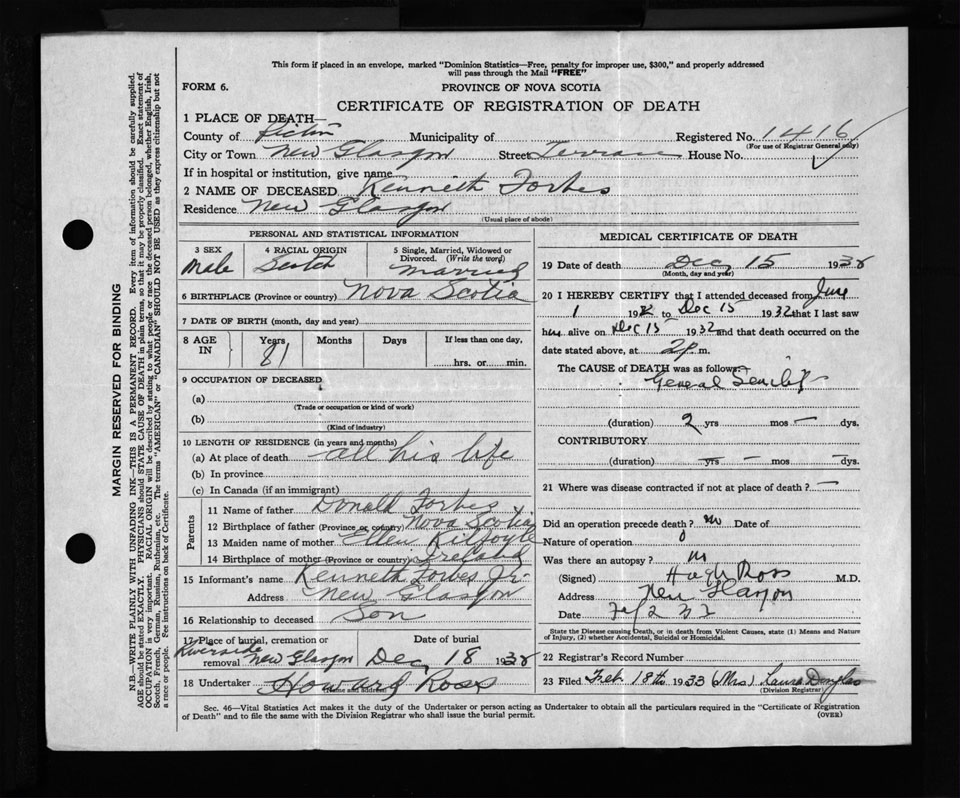 This form if placed in an envelope, marked "Dominion Statistics—Free, penalty for improper use, $300," and properly addressed
will pass through the Mail "FREE"
FORM 6.
PROVINCE OF NOVA SCOTIA
CERTIFICATE OF REGISTRATION OF DEATH
1 PLACE OF DEATH—
County of Pictou Municipality of Registered No. 1416
(For use of Registrar General only)
City or Town New Glasgow Street Terrace House No.
If in hospital or institution, give name
2 NAME OF DECEASED Kenneth Forbes
Residence New Glasgow
(Usual place of abode)
PERSONAL AND STATISTICAL INFORMATION
3 SEX Male
4 RACIAL ORIGIN Scotch
5 Single, Married, Widowed or
Divorced. (Write the word)
married
6 BIRTHPLACE (Province or country) Nova Scotia
7 DATE OF BIRTH (month, day and year)
8 AGE IN Years 81 Months Days If less than one day,
hrs. or min.
9 OCCUPATION OF DECEASED
(a)
(Trade or occupation or kind of work)
(b)
(Kind of industry)
10 LENGTH OF RESIDENCE (in years and months)
(a) At place of death all his life
(b) In province
(c) In Canada (if an immigrant)
Parents
11 Name of father Donald Forbes
12 Birthplace of father (Province or country) Nova Scotia
13 Maiden name of mother Ellen Kilfoyle
14 Birthplace of mother (Province or country) Ireland
15 Informant's name Kenneth Forbes Jr.
Address New Glasgow
16 Relationship to deceased Son
17 Place of burial, cremation or Date of burial
Riverside
removal New Glasgow Dec 18 1932
18 Undertaker Howard Ross
name and address
MEDICAL CERTIFICATE OF DEATH
19 Date of death Dec 15 1932
(Month, day and year)
20 I HEREBY CERTIFY that I attended deceased from June
1 1932 to Dec 15 1932 that I last saw
him alive on Dec 15 1932 and that death occurred on
date stated above, at 2 P. m.
The CAUSE of DEATH was as follows:
General Senility
(duration) 2 yrs mos — dys.
CONTRIBUTORY
(duration) — yrs — mos — dys.
21 Where was disease contracted if not at place of death? —
Did an operation precede death? no Date of
Nature of operation
Was there an autopsy? no
(Signed) Hugh Ross M.D.
Address New Glasgow
Date
State the Disease causing Death, or in death from Violent Causes, state (1) Means and Nature
of Injury, (2) whether Accidental, Suicidal or Homicidal.
22 Registrar's Record Number
23 Filed Feb 18th 1933 (Mrs) Laura Douglas
(Division Registrar)
Sec. 46—Vital Statistics Act makes it the duty of the Undertaker or person acting as Undertaker to obtain all the particulars required in the "Certificate of Registration
of Death" and to file the same with the Division Registrar who shall issue the burial permit. (OVER)
MARGIN RESERVED FOR BINDING
N.B.—WRITE PLAINLY WITH UNFADING INK—THIS IS A PERMANENT RECORD. Every item of information should be carefully supplied.
AGE should be stated EXACTLY. PHYSICIANS should STATE CAUSE OF DEATH in plain terms, so that it may be properly classified. Exact statement of
OCCUPATION is very important. RACIAL ORIGIN will be described by stating to what people or race the deceased person belonged, whether English, Irish,
Scotch, French, German, Russian, Ruthenian, etc. The terms "AMERICAN" or "CANADIAN" SHOULD NOT BE USED as they express citizenship but not
a race or people. See instructions on back of Certificate.